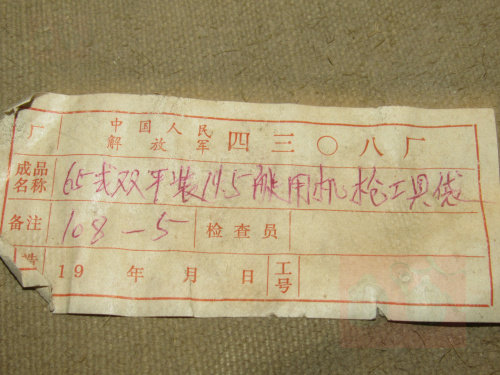 厂 中国人民解放军 四三〇八厂
成品名称 65式双平装14.5艇用机枪工具袋
备注 108-5 检查员
19 年 月 日 工号